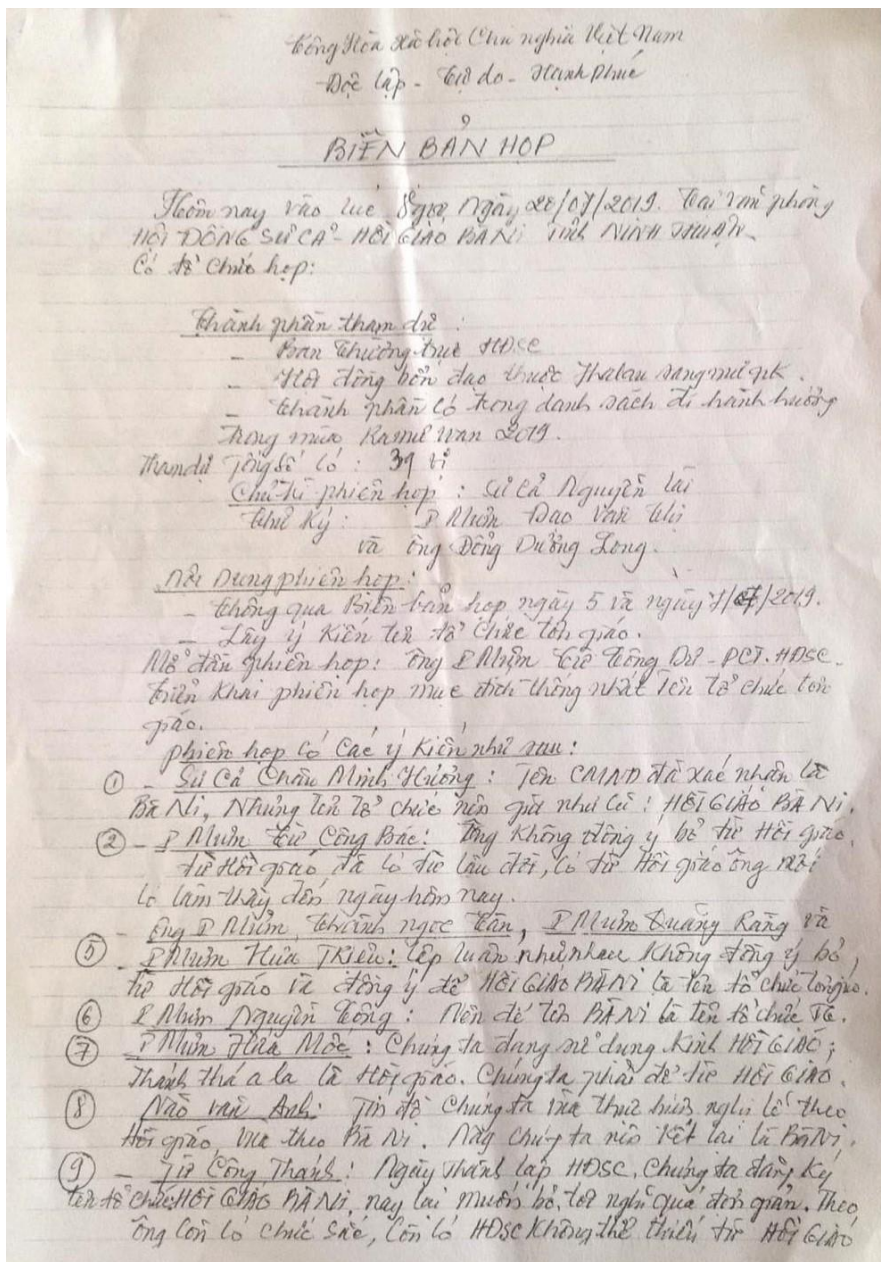 Cộng Hòa Xã hội Chủ nghĩa Việt Nam
Độc lập - Tự do - Hạnh Phúc
BIÊN BẢN HỌP
Hôm nay vào lúc 8 giờ, Ngày 20/07/2019. Tại văn phòng
HỘI ĐỒNG SƯ CẢ - HỒI GIÁO BÀ NI TỈNH NINH THUẬN.
Có tổ chức họp:
Thành phần tham dự:
- Ban thường trực HĐSC
- Hội đồng bổn đạo thuộc
- thành phần có trong danh sách đi hành hương
trong mùa Ramưwan 2019.
Tham dự Tổng số có: 39 vị
Chủ trì phiên họp: Sư Cả Nguyễn Lài
Thư Ký: I Mưm Đạo Văn Thị
và ông Đồng Dưỡng Long.
Nội Dung phiên họp:
- thông qua Biên bản họp ngày 5 và ngày 7/07/2019.
- Lấy ý kiến tên tổ chức tôn giáo.
Mở đầu phiên họp: ông I Mưm Từ Công Dư - PCT. HĐSC.
triển khai phiên họp mục đích thống nhất Tên tổ chức tôn
giáo.
phiên họp có các ý kiến như sau:
① - Sư Cả Châu Minh Hưởng: Tên CMND đã xác nhận là
Bà Ni, Nhưng tên tổ chức nên giữ như cũ: HỒI GIÁO BÀ NI.
② - I Mưm Từ Công Bác: Ông không đồng ý bỏ từ Hồi giáo,
từ Hồi giáo đã có từ lâu đời, có từ Hồi giáo ông mới
có làm thầy đến ngày hôm nay.
- ông I Mưm, thành ngọc Tân, I Mưm Quảng Rang và
⑤ - I Mưm Hứa Triều: lập luận như nhau không đồng ý bỏ,
từ Hồi giáo và đồng ý để HỒI GIÁO BÀ NI là tên tổ chức tôn giáo.
⑥ I Mưm Nguyễn Tông: Nên để tên BÀ Ni là tên tổ chức TG.
⑦ I Mưm Hứa Mốc: Chúng ta đang sử dụng Kinh HỒI GIÁO;
Thánh a la là Hồi giáo. Chúng ta phải để từ HỒI GIÁO.
⑧ Não Văn Anh: Tín đồ chúng ta vừa thực hiện nghi lễ theo
Hồi giáo, vừa theo Bà Ni. Nay chúng ta nên kết lại là BàNi,
⑨ - Từ Công Thạnh: Ngày thành lập HĐSC, Chúng ta đang ký
tên tổ chức HỒI GIÁO BÀ NI, nay lại muốn bỏ, tôi nghĩ quá đơn giản. Theo
ông còn có chức sắc, còn có HĐSC không thể thiếu từ HỒI GIÁO